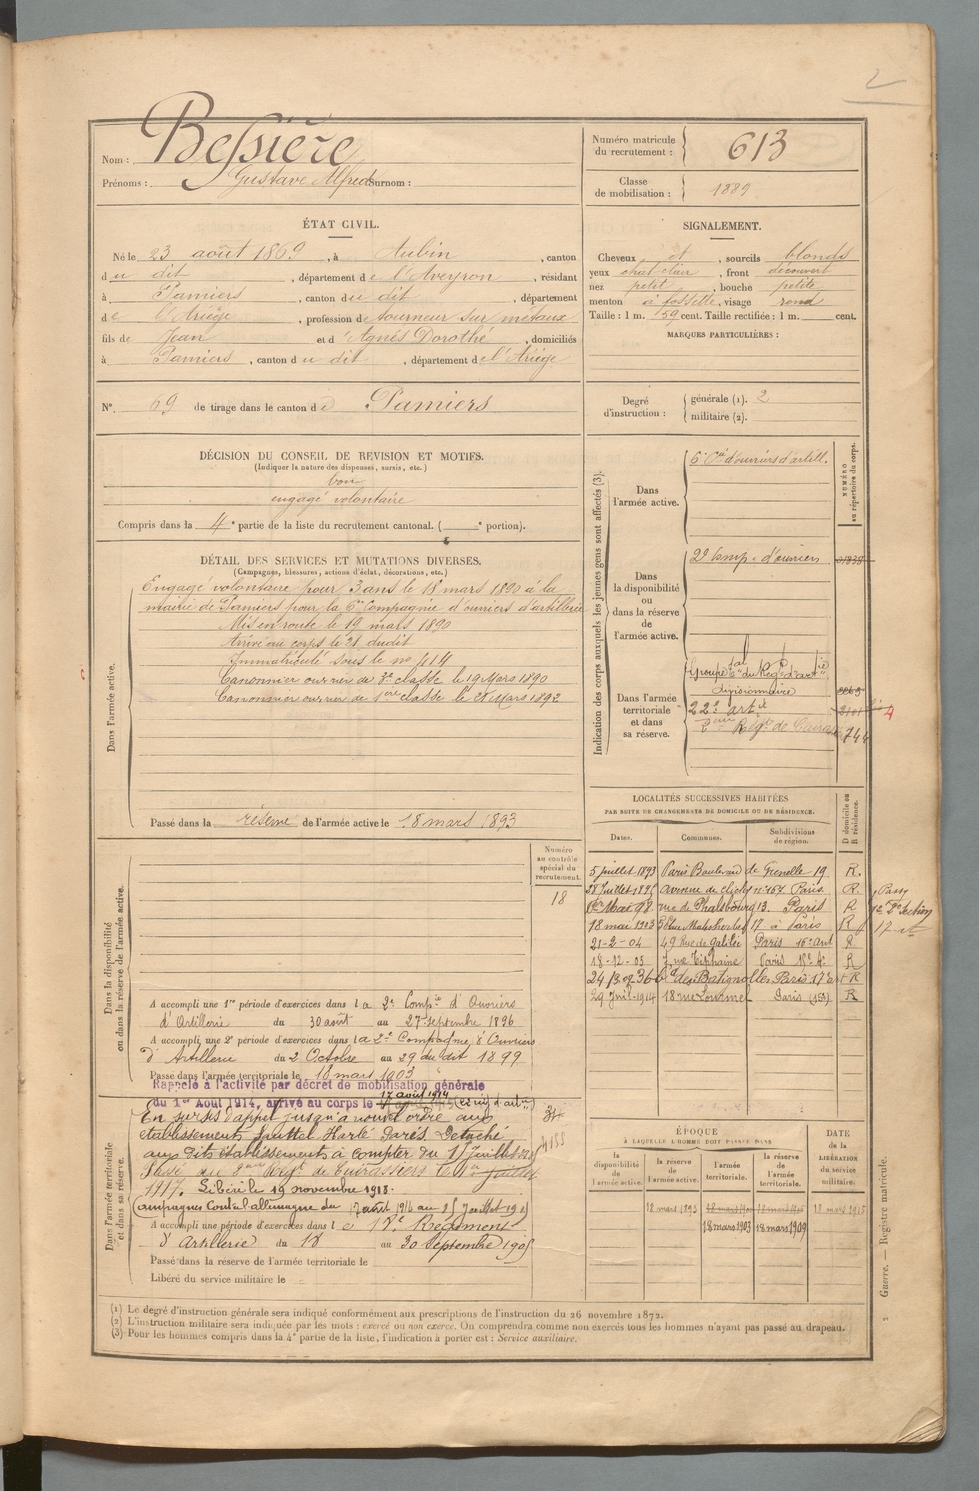 2
Nom : Bessière
Prénoms : Gustave Alfred Surnom :
Numéro matricule du recrutement : 613
Classe de mobilisation : 1889
ÉTAT CIVIL.
Né le 23 août 1869, à Aubin, canton
du dit, département de l'Aveyron, résidant
à Pamiers, canton du dit, département
de l'Ariège, profession de tourneur sur métaux
fils de Jean et d'Agnès Dorothé, domiciliés
à Pamiers, canton du dit, département de l'Ariège
SIGNALEMENT.
Cheveux et, sourcils blonds
yeux chat. clair, front découvert
nez petit, bouche petite
menton à fossette, visage rond
Taille : 1 m. 59 cent. Taille rectifiée : 1 m. cent.
MARQUES PARTICULIÈRES :
N° 69 de tirage dans le canton de Pamiers
Degré d'instruction : générale (1). 2
militaire (2).
DÉCISION DU CONSEIL DE REVISION ET MOTIFS.
(Indiquer la nature des dispenses, sursis, etc.)
bon
engagé volontaire
Compris dans la 4e partie de la liste du recrutement cantonal. ( e portion).
DÉTAIL DES SERVICES ET MUTATIONS DIVERSES.
(Campagnes, blessures, actions d'éclat, décorations, etc.)
Dans l'armée active.
Engagé volontaire pour 3 ans le 18 mars 1890 à la
mairie de Pamiers pour la 6e Compagnie d'ouvriers d'artillerie
Mis en route le 19 mars 1890
Arrivé au corps le 21 dudit
Immatriculé sous le no 414
Canonnier ouvrier de 3e classe le 19 Mars 1890
Canonnier ouvrier de 1ère classe le 21 Mars 1892
Passé dans la réserve de l'armée active le 18 mars 1893
Indication des corps auxquels les jeunes gens sont affectés (3).
NUMÉRO au répertoire du corps.
Dans l'armée active.
6e Cie d'ouvriers d'artill.
Dans la disponibilité ou dans la réserve de l'armée active.
2e Comp. d'ouvriers
Dans l'armée territoriale et dans sa réserve.
Groupe tal du Rég. d'artie
divisionnaire
22e artie
8ème Régt de Cuirass.
744
4
LOCALITÉS SUCCESSIVES HABITÉES
PAR SUITE DE CHANGEMENTS DE DOMICILE OU DE RÉSIDENCE.
Dates. Communes. Subdivisions de région. D domicile ou R résidence.
5 juillet 1893 Paris Boulevard de Grenelle 19 R.
28 Juillet 1895 avenue de clichy no 167 Paris R.
1er Mai 98 rue de Phalsbourg 13. Paris R
18 mai 1903 Malesherbes 17 à Paris R
21-2-04 49 Rue de Galilée Paris 16e arrt R
18-12-05 7 rue Tiphaine Paris 15e R
36 Bd des Batignolles Paris 17e arrt R
29 Juil. 1914 18 rue Lourmel Paris (15e) R
Dans la disponibilité ou dans la réserve de l'armée active.
Numéro au contrôle spécial du recrutement.
18
A accompli une 1re période d'exercices dans la 2e Compie d'Ouvriers
d'Artillerie du 30 août au 27 septembre 1896
A accompli une 2e période d'exercices dans la 2e Compagnie d'Ouvriers
d'Artillerie du 2 Octobre au 29 du dit 1899
Passé dans l'armée territoriale le 18 mars 1903
Rappelé à l'activité par décret de mobilisation générale
du 1er Août 1914, arrivé au corps le 17 août 1914
Dans l'armée territoriale et dans sa réserve.
En sursis d'appel jusqu'à nouvel ordre aux
établissements Sautter Harlé Paris. Détaché
aux dits établissements à compter du 15 juillet
Passé au 8ème Régt de Cuirassiers le 1er Juillet
1917. Libéré le 19 novembre 1918.
Campagnes Contre l'allemagne du 17 août 1914 au 15 Juillet 1915
A accompli une période d'exercices dans le 12e Régiment
d'Artillerie du 18 au 30 Septembre 1905
Passé dans la réserve de l'armée territoriale le
Libéré du service militaire le
ÉPOQUE
À LAQUELLE L'HOMME DOIT PASSER DANS
la disponibilité de l'armée active. la réserve de l'armée active. l'armée territoriale. la réserve de l'armée territoriale. DATE de la LIBÉRATION du service militaire.
18 mars 1893 18 mars 1915
18 mars 1903 18 mars 1909
Guerre. — Registre matricule.
(1) Le degré d'instruction générale sera indiqué conformément aux prescriptions de l'instruction du 26 novembre 1872.
(2) L'instruction militaire sera indiquée par les mots : exercé ou non exercé. On comprendra comme non exercés tous les hommes n'ayant pas passé au drapeau.
(3) Pour les hommes compris dans la 4e partie de la liste, l'indication à porter est : Service auxiliaire.